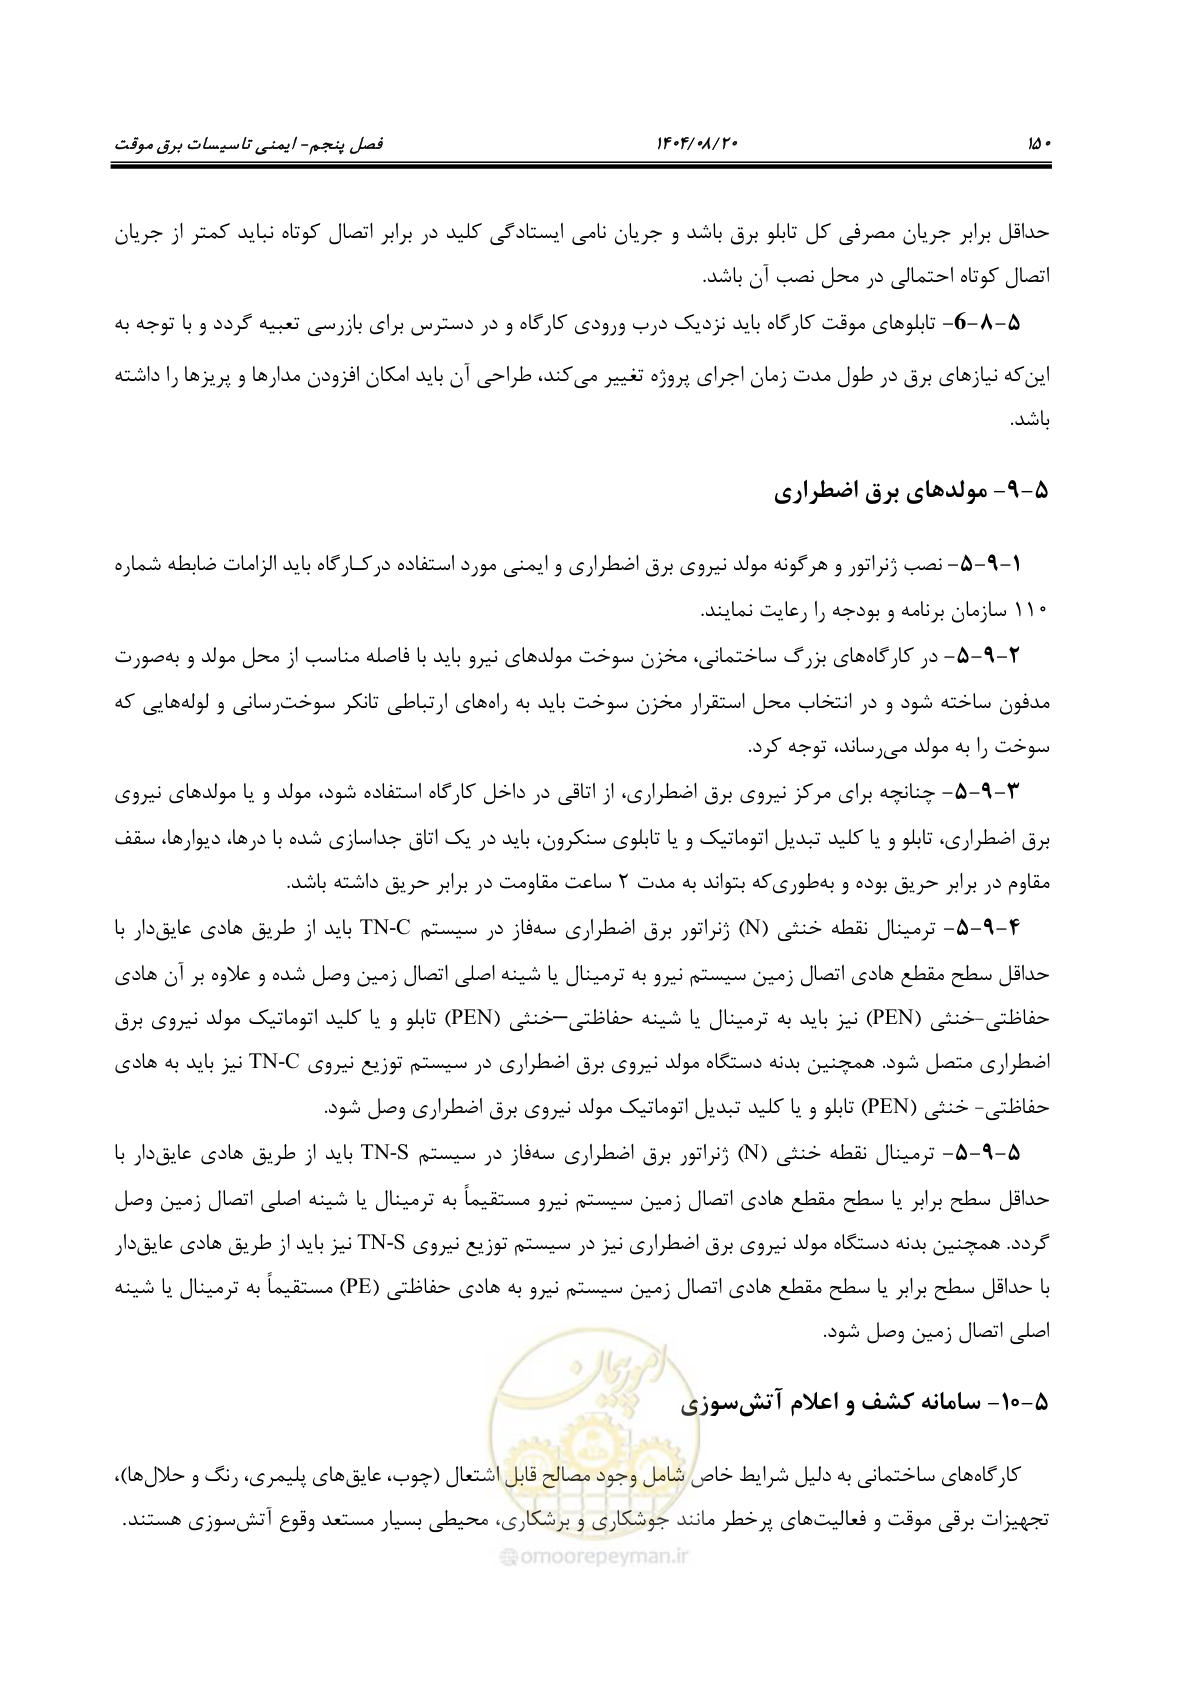 ۱۵۰ ۱۴۰۴/۰۸/۲۰ فصل پنجم- ایمنی تاسیسات برق موقت
حداقل برابر جریان مصرفی کل تابلو برق باشد و جریان نامی ایستادگی کلید در برابر اتصال کوتاه نباید کمتر از جریان
اتصال کوتاه احتمالی در محل نصب آن باشد.
۵-۸-6- تابلوهای موقت کارگاه باید نزدیک درب ورودی کارگاه و در دسترس برای بازرسی تعبیه گردد و با توجه به
این‌که نیازهای برق در طول مدت زمان اجرای پروژه تغییر می‌کند، طراحی آن باید امکان افزودن مدارها و پریزها را داشته
باشد.
۵-۹- مولدهای برق اضطراری
۵-۹-۱- نصب ژنراتور و هرگونه مولد نیروی برق اضطراری و ایمنی مورد استفاده درکـارگاه باید الزامات ضابطه شماره
۱۱۰ سازمان برنامه و بودجه را رعایت نمایند.
۵-۹-۲- در کارگاه‌های بزرگ ساختمانی، مخزن سوخت مولدهای نیرو باید با فاصله مناسب از محل مولد و به‌صورت
مدفون ساخته شود و در انتخاب محل استقرار مخزن سوخت باید به راه‌های ارتباطی تانکر سوخت‌رسانی و لوله‌هایی که
سوخت را به مولد می‌رساند، توجه کرد.
۵-۹-۳- چنانچه برای مرکز نیروی برق اضطراری، از اتاقی در داخل کارگاه استفاده شود، مولد و یا مولدهای نیروی
برق اضطراری، تابلو و یا کلید تبدیل اتوماتیک و یا تابلوی سنکرون، باید در یک اتاق جداسازی شده با درها، دیوارها، سقف
مقاوم در برابر حریق بوده و به‌طوری‌که بتواند به مدت ۲ ساعت مقاومت در برابر حریق داشته باشد.
۵-۹-۴- ترمینال نقطه خنثی (N) ژنراتور برق اضطراری سه‌فاز در سیستم TN-C باید از طریق هادی عایق‌دار با
حداقل سطح مقطع هادی اتصال زمین سیستم نیرو به ترمینال یا شینه اصلی اتصال زمین وصل شده و علاوه بر آن هادی
حفاظتی-خنثی (PEN) نیز باید به ترمینال یا شینه حفاظتی–خنثی (PEN) تابلو و یا کلید اتوماتیک مولد نیروی برق
اضطراری متصل شود. همچنین بدنه دستگاه مولد نیروی برق اضطراری در سیستم توزیع نیروی TN-C نیز باید به هادی
حفاظتی- خنثی (PEN) تابلو و یا کلید تبدیل اتوماتیک مولد نیروی برق اضطراری وصل شود.
۵-۹-۵- ترمینال نقطه خنثی (N) ژنراتور برق اضطراری سه‌فاز در سیستم TN-S باید از طریق هادی عایق‌دار با
حداقل سطح برابر یا سطح مقطع هادی اتصال زمین سیستم نیرو مستقیماً به ترمینال یا شینه اصلی اتصال زمین وصل
گردد. همچنین بدنه دستگاه مولد نیروی برق اضطراری نیز در سیستم توزیع نیروی TN-S نیز باید از طریق هادی عایق‌دار
با حداقل سطح برابر یا سطح مقطع هادی اتصال زمین سیستم نیرو به هادی حفاظتی (PE) مستقیماً به ترمینال یا شینه
اصلی اتصال زمین وصل شود.
امور پیمان
۵-۱۰- سامانه کشف و اعلام آتش‌سوزی
کارگاه‌های ساختمانی به دلیل شرایط خاص شامل وجود مصالح قابل اشتعال (چوب، عایق‌های پلیمری، رنگ و حلال‌ها)،
تجهیزات برقی موقت و فعالیت‌های پرخطر مانند جوشکاری و برشکاری، محیطی بسیار مستعد وقوع آتش‌سوزی هستند.
@omoorepeyman.ir